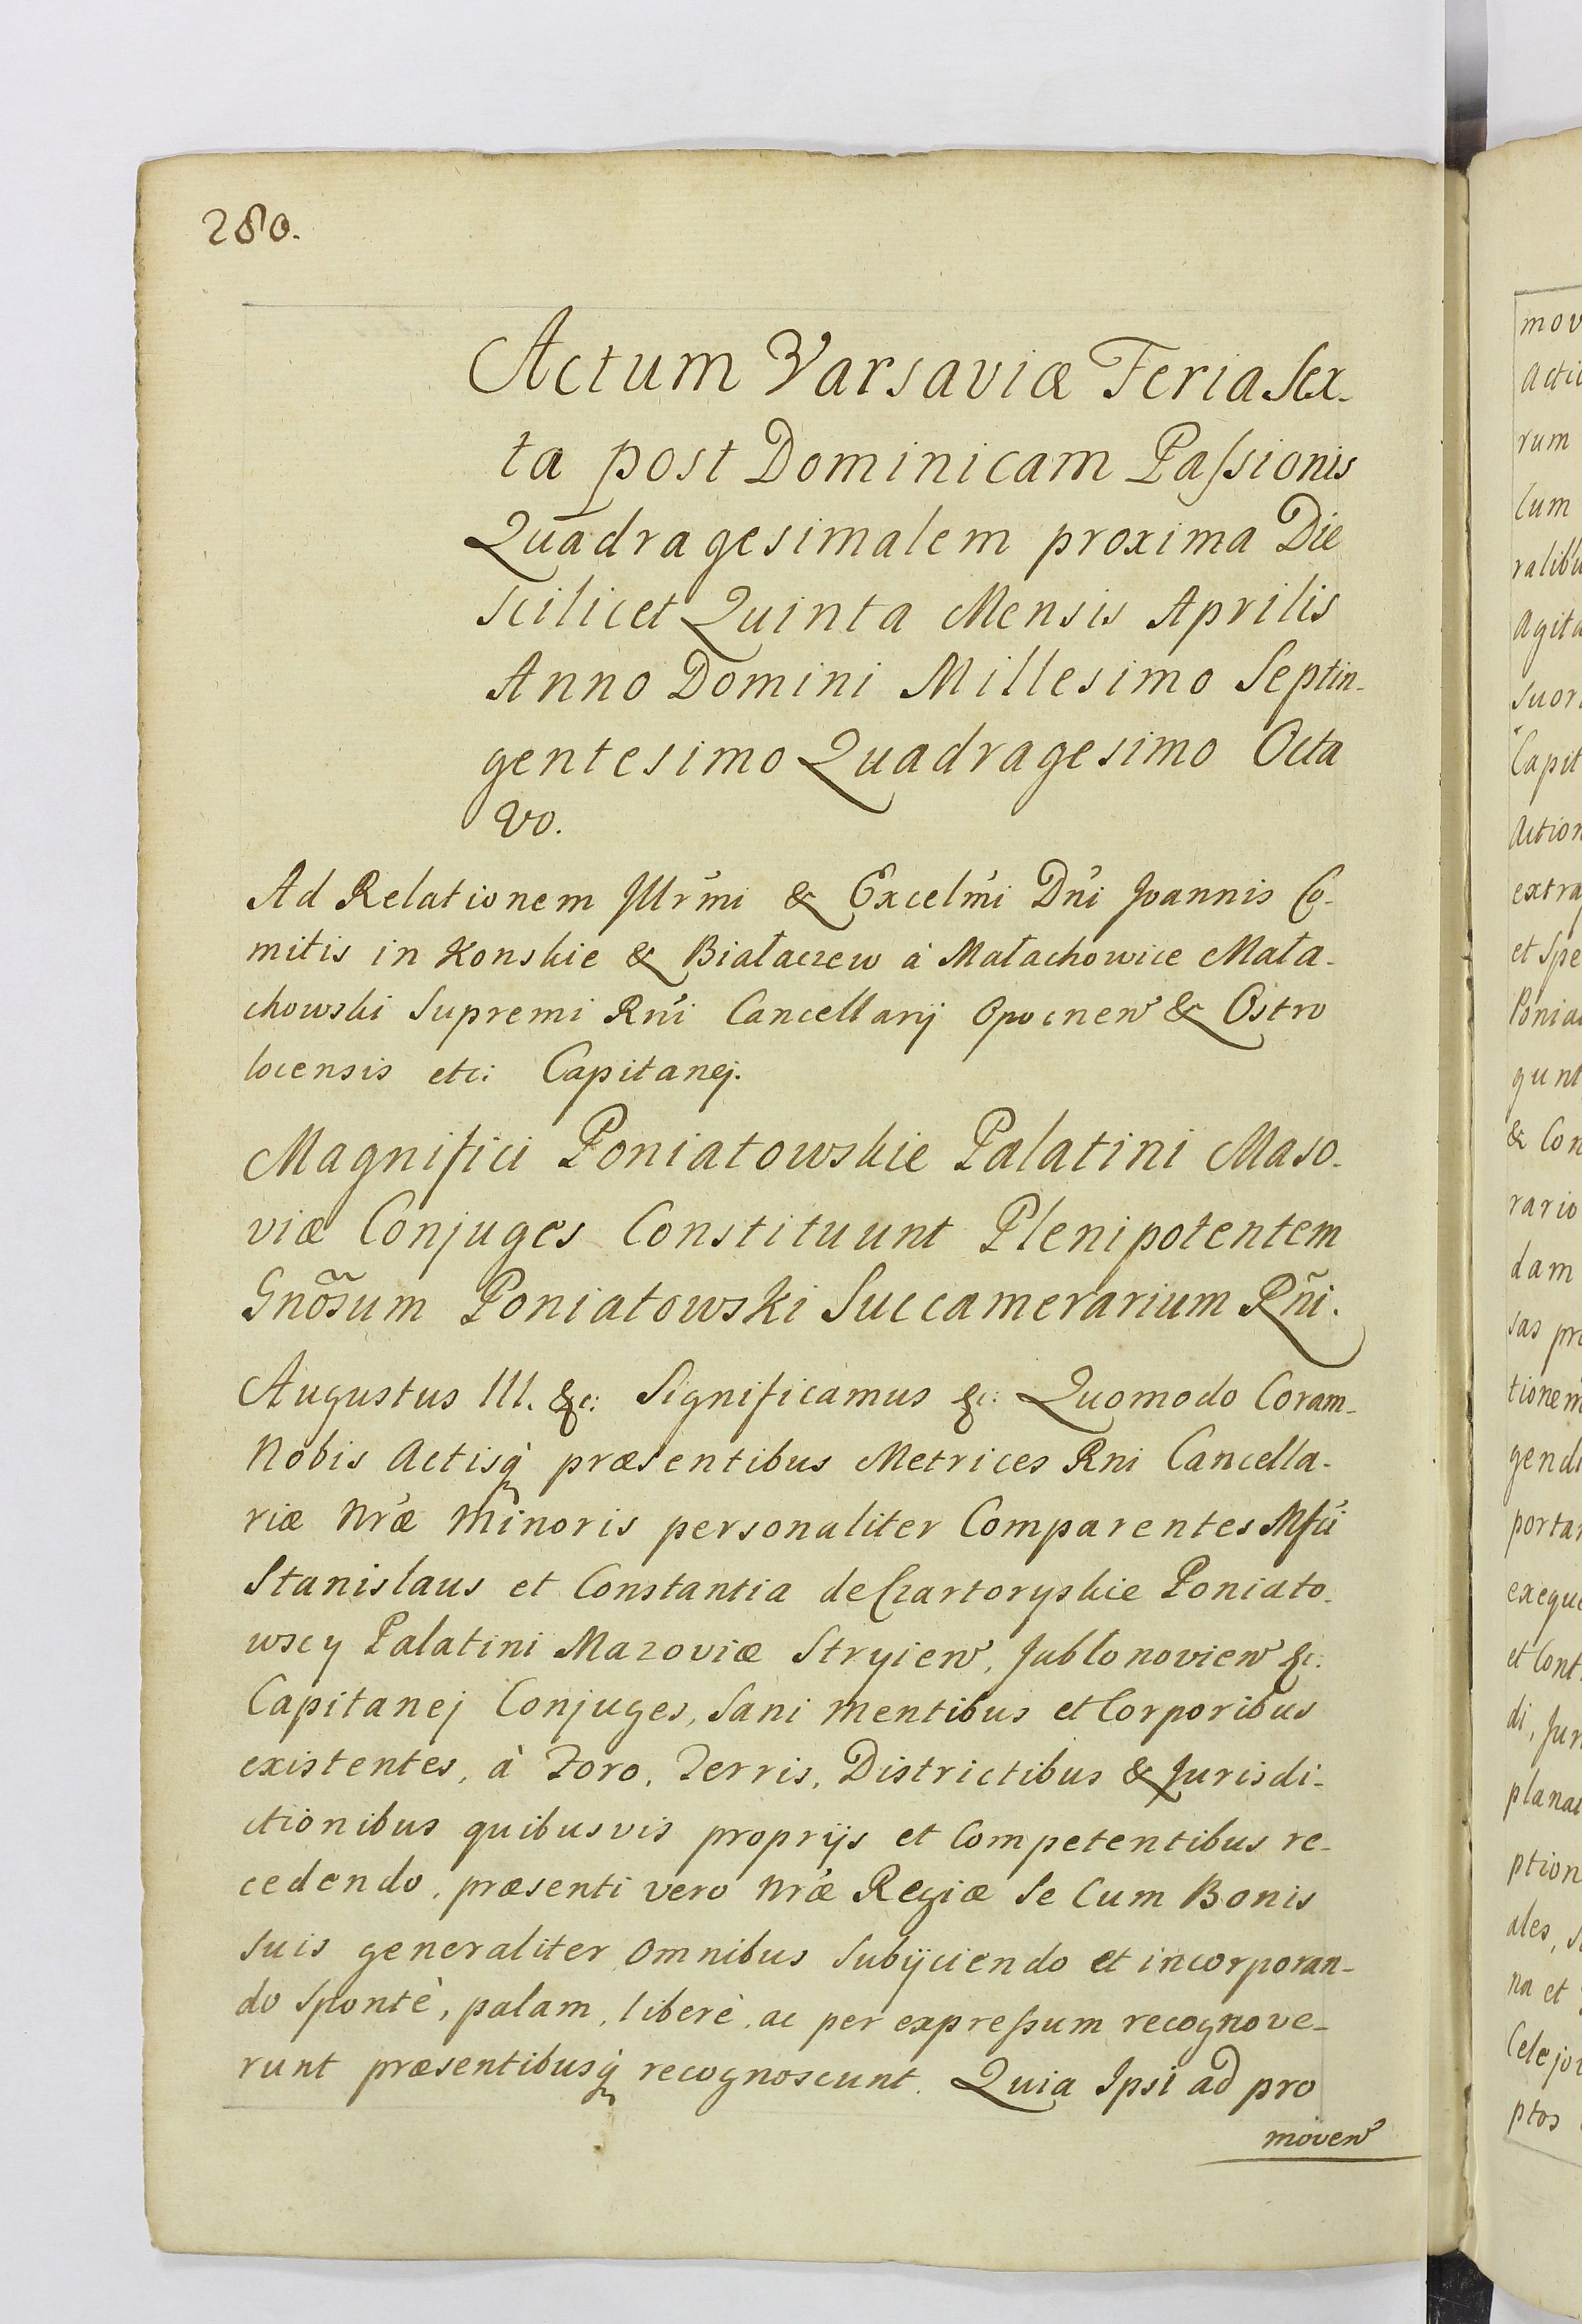 280.
Actum Varsaviæ Feria Sex-
ta post Dominicam Paſsionis
Quadragesimalem proxima Die
scilicet Quinta Mensis Aprilis
Anno Domini Millesimo Septin-
gentesimo Quadragesimo Octa
vo.
Ad Relationem Illrm̃i & Excelm̃i Dñi Joannis Co-
mitis in Konskie & Białaczew à Małachowice Mała-
chowski Supremi Rñi Cancellarij Opocnen̄ & Ostro
locensis etc: Capitanej.
Magnifici Poniatowskie Palatini Maso-
viæ Conjuges Constituunt Plenipotentem
Gnõsum Poniatowski Succamerarium Rñi.
Augustus III. &c: Significamus &c: Quomodo Coram-
Nobis Actisq̀ præsentibus Metrices Rni Cancella-
riæ Nr̃æ Minoris personaliter Comparentes Mfĩi
Stanislaus et Constantia de Czartoryskie Poniato-
wscy Palatini Mazoviæ Stryien̄, Jablonovien̄ &c:
Capitanej Conjuges, Sani mentibus et Corporibus
existentes, à Foro, Terris, Districtibus & Jurisdi-
ctionibus quibusvis proprijs et Competentibus re-
cedendo, præsenti vero Nr̃æ Regiæ Se Cum Bonis
suis generaliter omnibus subijciendo et incorporan-
do spontè, palam, liberè, ac per expreſsum recognove-
runt præsentibusq̀ recognoscunt. Quia Ipsi ad pro
moven̄
mov
Actio
rum
Cum
ralibu
Agita
suor
Capit
Action
extra
et Spe
Ponia
gunt
& Con
rario
dam
sas pr
tionem
gendi
portan
exeque
et Cont
di, Jur
plana
ption
ales, s
na et
Celejo
ptos